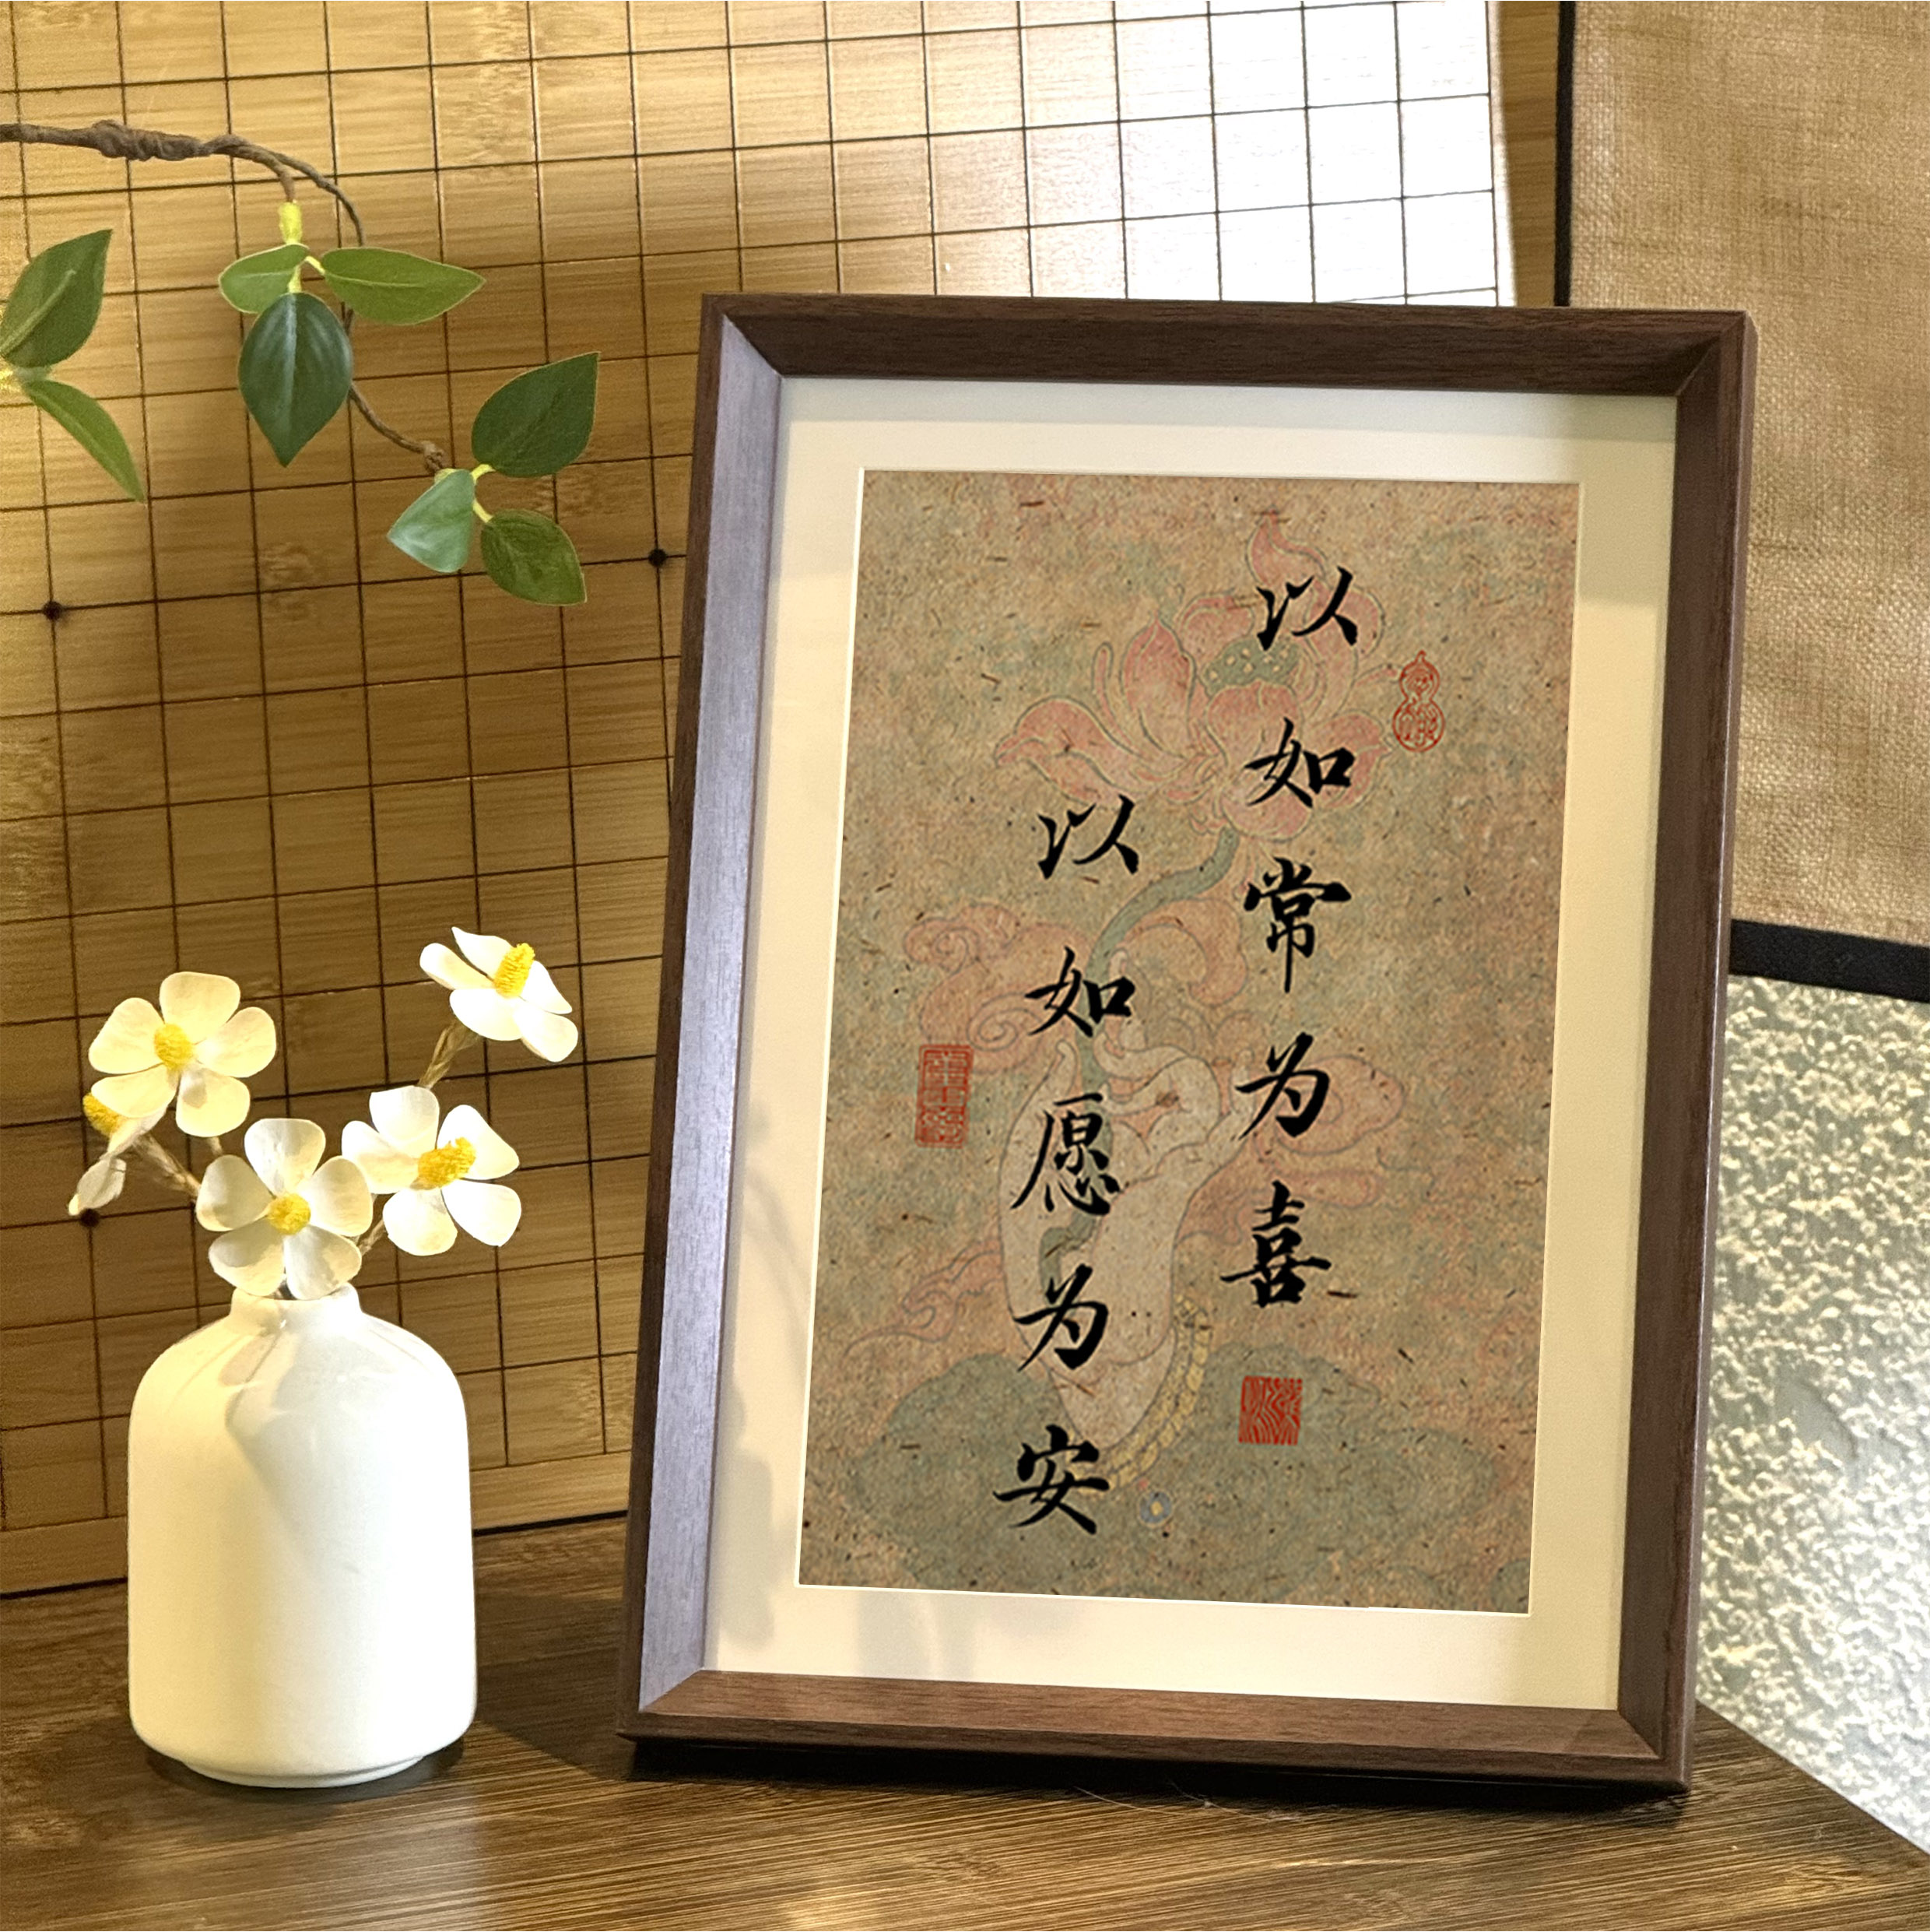 以如常为喜
以如愿为安